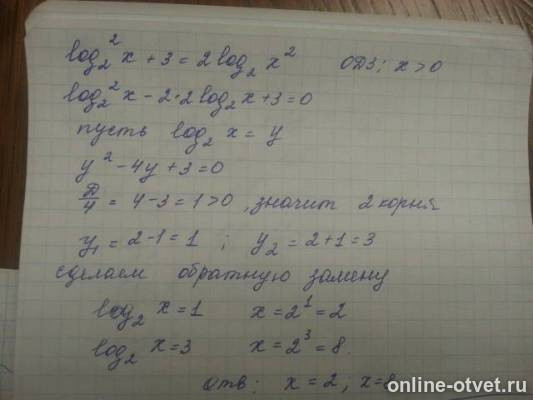 log₂² x + 3 = 2 log₂ x² ОДЗ: x > 0
log₂² x − 2·2 log₂ x + 3 = 0
пусть log₂ x = y
y² − 4y + 3 = 0
Д/4 = 4 − 3 = 1 > 0, значит 2 корня
y₁ = 2 − 1 = 1 ; y₂ = 2 + 1 = 3
сделаем обратную замену
log₂ x = 1 x = 2¹ = 2
log₂ x = 3 x = 2³ = 8.
Отв: x = 2, x = 8
online-otvet.ru